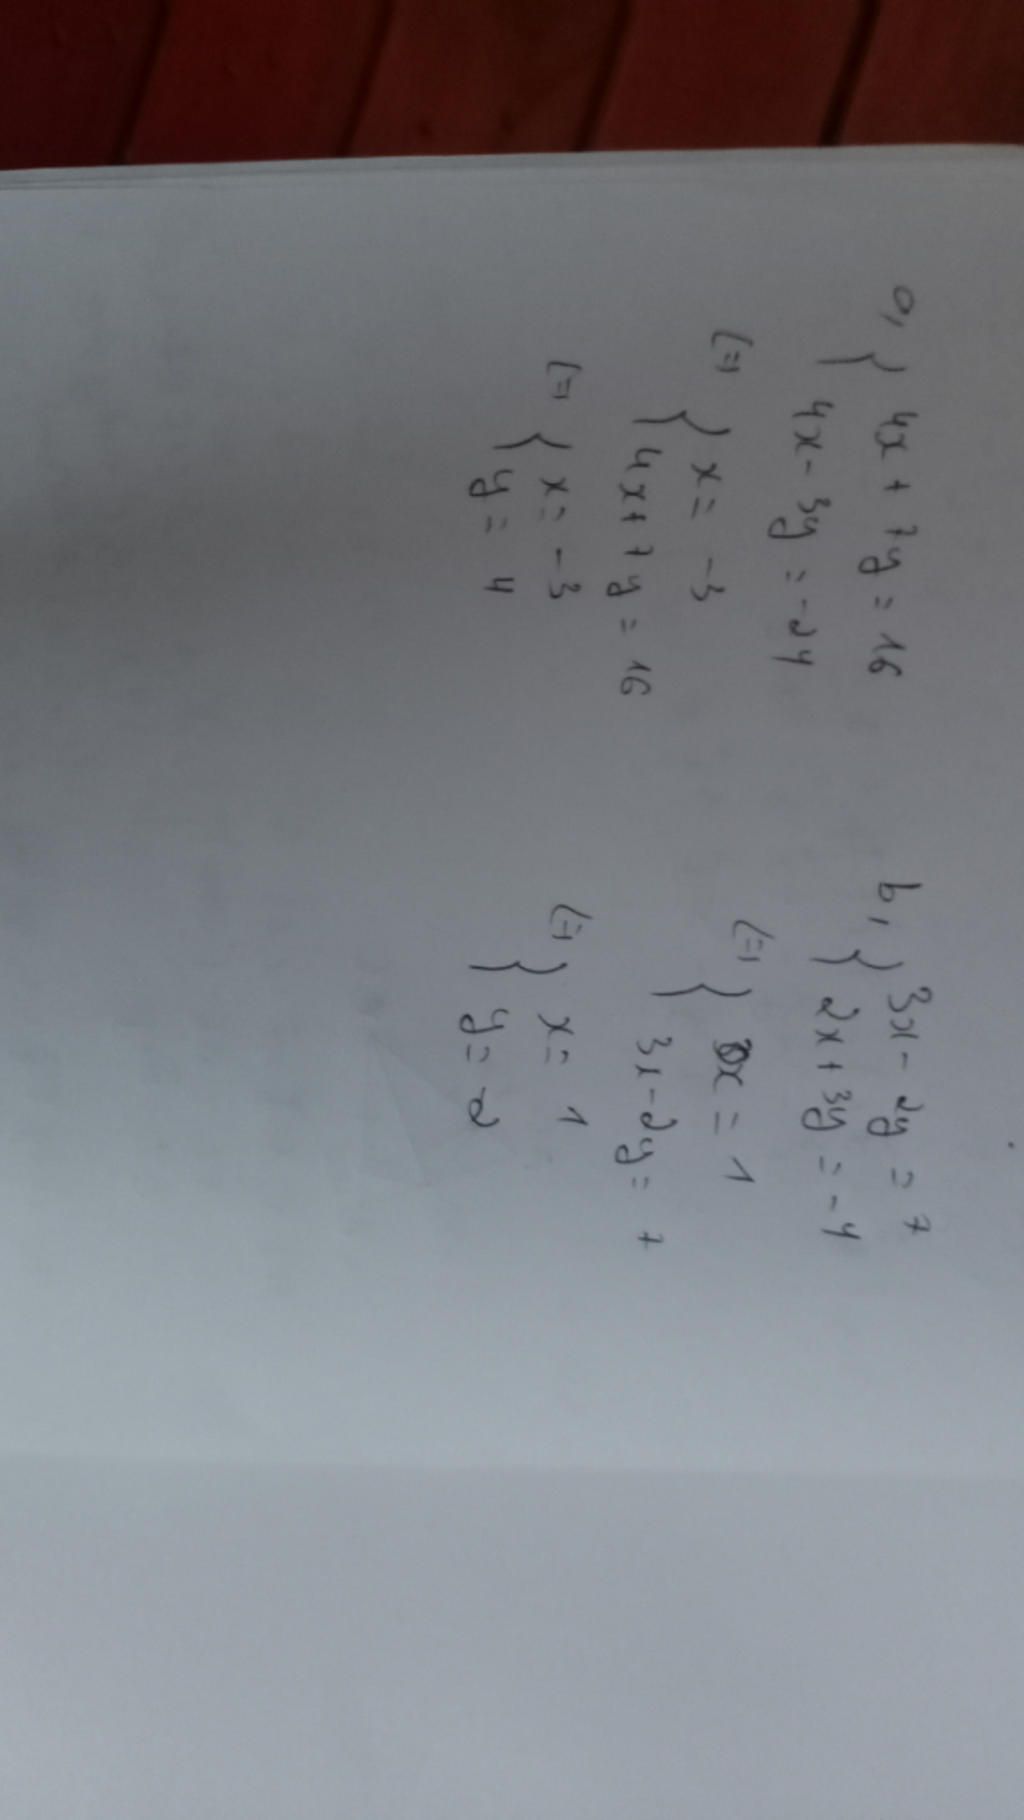 a, { 4x + 7y = 16
4x - 3y = -24
(=) { x = -3
4x + 7y = 16
(=) { x = -3
y = 4
b, { 3x - 2y = 7
2x + 3y = -4
(=) { x = 1
3x - 2y = 7
(=) { x = 1
y = -2